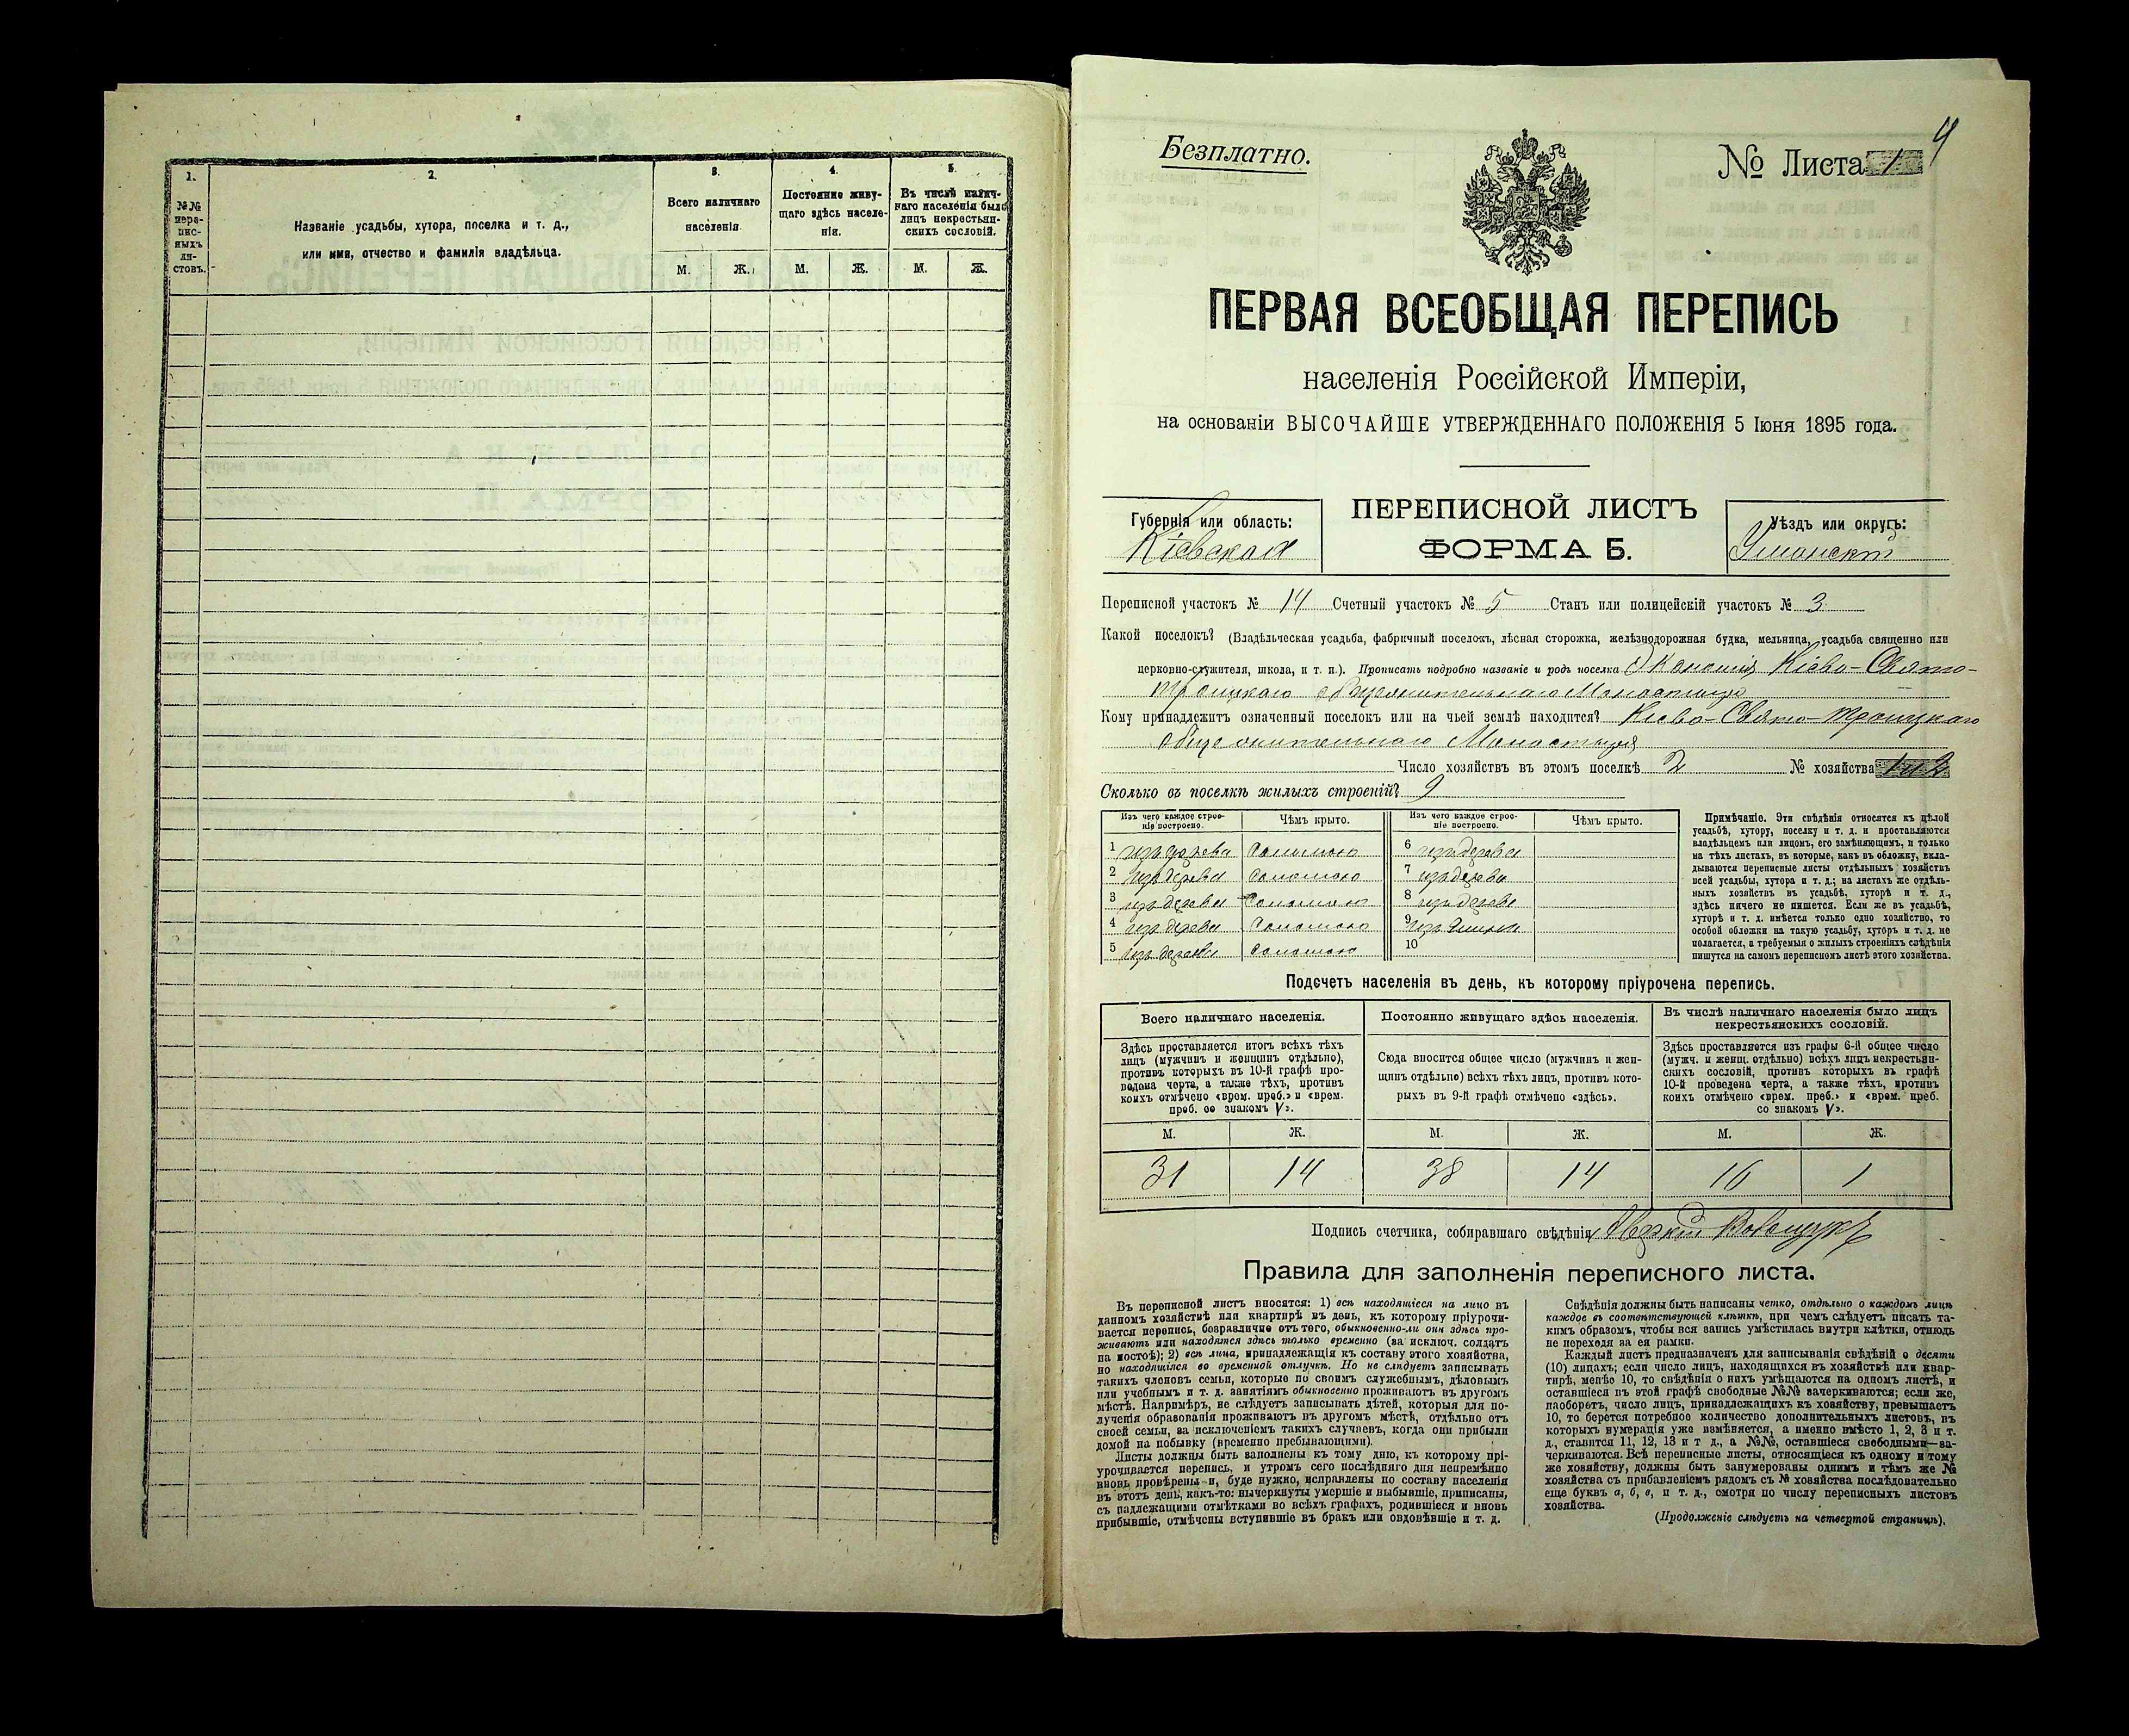 1.
2.
3.
4.
5.
№№ пере-
пис-
ныхъ
ли-
стовъ.
Названіе усадьбы, хутора, поселка и т. д.,
или имя, отчество и фамилія владѣльца.
Всего наличнаго
населенія.
Постоянно живу-
щаго здѣсь населе-
нія.
Въ числѣ налич-
наго населенія было
лицъ некрестьян-
скихъ сословій.
М. Ж. М. Ж. М. Ж.
4
Безплатно.
№ Листа 1
ПЕРВАЯ ВСЕОБЩАЯ ПЕРЕПИСЬ
населенія Россійской Имперіи,
на основаніи ВЫСОЧАЙШЕ УТВЕРЖДЕННАГО ПОЛОЖЕНІЯ 5 Іюня 1895 года.
Губернія или область:
Кіевская
ПЕРЕПИСНОЙ ЛИСТЪ
ФОРМА Б.
Уѣздъ или округъ:
Уманскій
Переписной участокъ № 14 Счетный участокъ № 5 Станъ или полицейскій участокъ № 3
Какой поселокъ? (Владѣльческая усадьба, фабричный поселокъ, лѣсная сторожка, желѣзнодорожная будка, мельница, усадьба священно или
церковно-служителя, школа, и т. п.). Прописать подробно названіе и родъ поселка Экономія Кіево-Свято-
Троицкаго общежительнаго Монастыря
Кому принадлежитъ означенный поселокъ или на чьей землѣ находится? Кіево-Свято-Троицкаго
общежительнаго Монастыря
Число хозяйствъ въ этомъ поселкѣ 2 № хозяйства 1 и 2
Сколько въ поселкѣ жилыхъ строеній? 9
Изъ чего каждое строе-
ніе построено.
Чѣмъ крыто.
Изъ чего каждое строе-
ніе построено.
Чѣмъ крыто.
1 изъ дерева Соломою 6 изъ дерева
2 изъ дерева Соломою 7 изъ дерева
3 изъ дерева Соломою 8 изъ дерева
4 изъ дерева Соломою 9 изъ глины
5 изъ дерева Соломою 10
Примѣчаніе. Эти свѣдѣнія относятся къ цѣлой
усадьбѣ, хутору, поселку и т. д. и проставляются
владѣльцемъ или лицомъ, его замѣняющимъ, и только
на тѣхъ листахъ, въ которые, какъ въ обложку, вкла-
дываются переписные листы отдѣльныхъ хозяйствъ
всей усадьбы, хутора и т. д.; на листахъ же отдѣль-
ныхъ хозяйствъ въ усадьбѣ, хуторѣ и т. д.,
здѣсь ничего не пишется. Если же въ усадьбѣ,
хуторѣ и т. д. имѣется только одно хозяйство, то
особой обложки на такую усадьбу, хуторъ и т. д. не
полагается, а требуемыя о жилыхъ строеніяхъ свѣдѣнія
пишутся на самомъ переписномъ листѣ этого хозяйства.
Подсчетъ населенія въ день, къ которому пріурочена перепись.
Всего наличнаго населенія.
Здѣсь проставляется итогъ всѣхъ тѣхъ
лицъ (мужчинъ и женщинъ отдѣльно),
противъ которыхъ въ 10-й графѣ про-
ведена черта, а также тѣхъ, противъ
коихъ отмѣчено «врем. преб.» и «врем.
преб. со знакомъ V».
Постоянно живущаго здѣсь населенія.
Сюда вносится общее число (мужчинъ и жен-
щинъ отдѣльно) всѣхъ тѣхъ лицъ, противъ кото-
рыхъ въ 9-й графѣ отмѣчено «здѣсь».
Въ числѣ наличнаго населенія было лицъ
некрестьянскихъ сословій.
Здѣсь проставляется изъ графы 6-й общее число
(мужч. и женщ. отдѣльно) всѣхъ лицъ некрестьян-
скихъ сословій, противъ которыхъ въ графѣ
10-й проведена черта, а также тѣхъ, противъ
коихъ отмѣчено «врем. преб.» и «врем. преб.
со знакомъ V».
М. Ж. М. Ж. М. Ж.
31 14 38 14 16 1
Подпись счетчика, собиравшаго свѣдѣнія
Правила для заполненія переписного листа.
Въ переписной листъ вносятся: 1) всѣ находящіеся на лицо въ
данномъ хозяйствѣ или квартирѣ въ день, къ которому пріурочи-
вается перепись, безразлично отъ того, обыкновенно-ли они здѣсь про-
живаютъ или находятся здѣсь только временно (за исключ. солдатъ
на постоѣ); 2) всѣ лица, принадлежащія къ составу этого хозяйства,
но находящіяся во временной отлучкѣ. Но не слѣдуетъ записывать
такихъ членовъ семьи, которые по своимъ служебнымъ, дѣловымъ
или учебнымъ и т. д. занятіямъ обыкновенно проживаютъ въ другомъ
мѣстѣ. Напримѣръ, не слѣдуетъ записывать дѣтей, которыя для по-
лученія образованія проживаютъ въ другомъ мѣстѣ, отдѣльно отъ
своей семьи, за исключеніемъ такихъ случаевъ, когда они прибыли
домой на побывку (временно пребывающими).
Листы должны быть заполнены къ тому дню, къ которому прі-
урочивается перепись, и утромъ сего послѣдняго дня непремѣнно
вновь провѣрены и, буде нужно, исправлены по составу населенія
въ этотъ день, какъ-то: вычеркнуты умершіе и выбывшіе, приписаны,
съ надлежащими отмѣтками во всѣхъ графахъ, родившіеся и вновь
прибывшіе, отмѣчены вступившіе въ бракъ или овдовѣвшіе и т. д.
Свѣдѣнія должны быть написаны четко, отдѣльно о каждомъ лицѣ
каждое въ соотвѣтствующей клѣткѣ, при чемъ слѣдуетъ писать та-
кимъ образомъ, чтобы вся запись умѣстилась внутри клѣтки, отнюдь
не переходя за ея рамки.
Каждый листъ предназначенъ для записыванія свѣдѣній о десяти
(10) лицахъ; если число лицъ, находящихся въ хозяйствѣ или квар-
тирѣ, менѣе 10, то свѣдѣнія о нихъ умѣщаются на одномъ листѣ, и
оставшіеся въ этой графѣ свободные №№ зачеркиваются; если же,
наоборотъ, число лицъ, принадлежащихъ къ хозяйству, превышаетъ
10, то берется потребное количество дополнительныхъ листовъ, въ
которыхъ нумерація уже измѣняется, а именно вмѣсто 1, 2, 3 и т.
д., ставится 11, 12, 13 и т д., а №№, оставшіеся свободными—за-
черкиваются. Всѣ переписные листы, относящіеся къ одному и тому
же хозяйству, должны быть занумерованы однимъ и тѣмъ же №
хозяйства съ прибавленіемъ рядомъ съ № хозяйства послѣдовательно
еще буквъ а, б, в, и т. д., смотря по числу переписныхъ листовъ
хозяйства.
(Продолженіе слѣдуетъ на четвертой страницѣ).